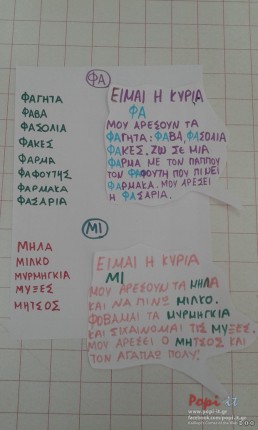 ΦΑ
ΦΑΓΗΤΑ
ΦΑΒΑ
ΦΑΣΟΛΙΑ
ΦΑΚΕΣ
ΦΑΡΜΑ
ΦΑΦΟΥΤΗΣ
ΦΑΡΜΑΚΑ
ΦΑΣΑΡΙΑ
ΕΙΜΑΙ Η ΚΥΡΙΑ
ΦΑ
ΜΟΥ ΑΡΕΣΟΥΝ ΤΑ
ΦΑΓΗΤΑ: ΦΑΒΑ, ΦΑΣΟΛΙΑ
ΦΑΚΕΣ. ΖΩ ΣΕ ΜΙΑ
ΦΑΡΜΑ ΜΕ ΤΟΝ ΠΑΠΠΟΥ
ΤΟΝ ΦΑΦΟΥΤΗ ΠΟΥ ΠΙΝΕΙ
ΦΑΡΜΑΚΑ. ΜΟΥ ΑΡΕΣΕΙ
Η ΦΑΣΑΡΙΑ.
ΜΙ
ΜΗΛΑ
ΜΙΛΚΟ
ΜΥΡΜΗΓΚΙΑ
ΜΥΞΕΣ
ΜΗΤΣΟΣ
ΕΙΜΑΙ Η ΚΥΡΙΑ
ΜΙ
ΜΟΥ ΑΡΕΣΟΥΝ ΤΑ ΜΗΛΑ
ΚΑΙ ΝΑ ΠΙΝΩ ΜΙΛΚΟ.
ΦΟΒΑΜΑΙ ΤΑ ΜΥΡΜΗΓΚΙΑ
ΚΑΙ ΣΙΧΑΙΝΟΜΑΙ ΤΙΣ ΜΥΞΕΣ.
ΜΟΥ ΑΡΕΣΕΙ Ο ΜΗΤΣΟΣ ΚΑΙ
ΤΟΝ ΑΓΑΠΑΩ ΠΟΛΥ.
Popi it
www.popi-it.gr